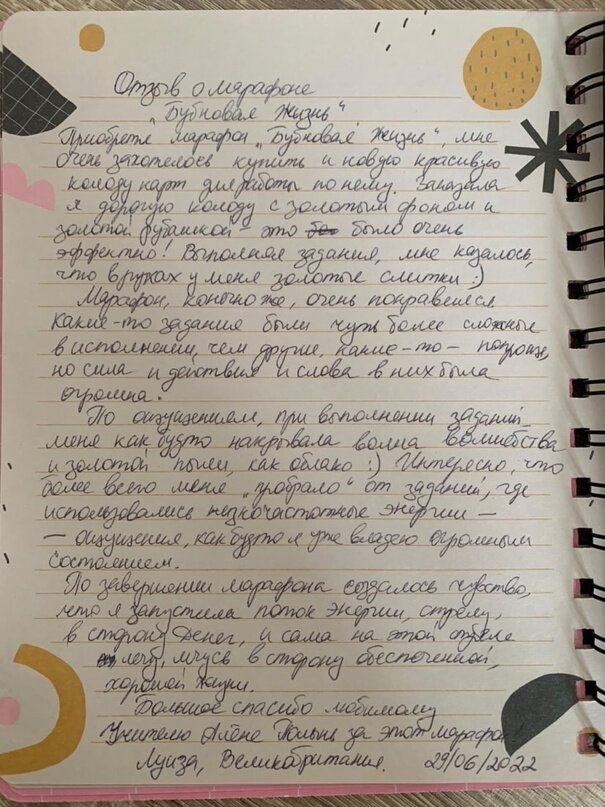 Отзыв о марафоне
„Бубновая Жизнь“
Приобретя марафон „Бубновая Жизнь“, мне
очень захотелось купить и новую красивую
колоду карт для работы по нему. Заказала
я дорогую колоду с золотым фоном и
золотой рубашкой – это было очень
эффектно! Выполняя задания, мне казалось,
что в руках у меня золотые слитки :)
Марафон, конечно же, очень понравился.
Какие-то задания были чуть более сложные
в исполнении, чем другие, какие-то – попроще,
но сила и действия и слова в них была
огромна.
По ощущениям, при выполнении заданий
меня как будто накрывала волна волшебства
и золотой пыли, как облако :) Интересно, что
более всего меня „пробрало“ от заданий, где
использовались низкочастотные энергии –
– ощущения, как будто я уже владею огромным
состоянием.
По завершении марафона создалось чувство,
что я запустила поток энергии, стрелу,
в сторону Денег, и сама на этой стреле
лечу, мчусь в сторону обеспеченной,
хорошей жизни.
Большое спасибо любимому
Учителю Алёне Полынь за этот марафон!
Луиза, Великобритания. 29/06/2022